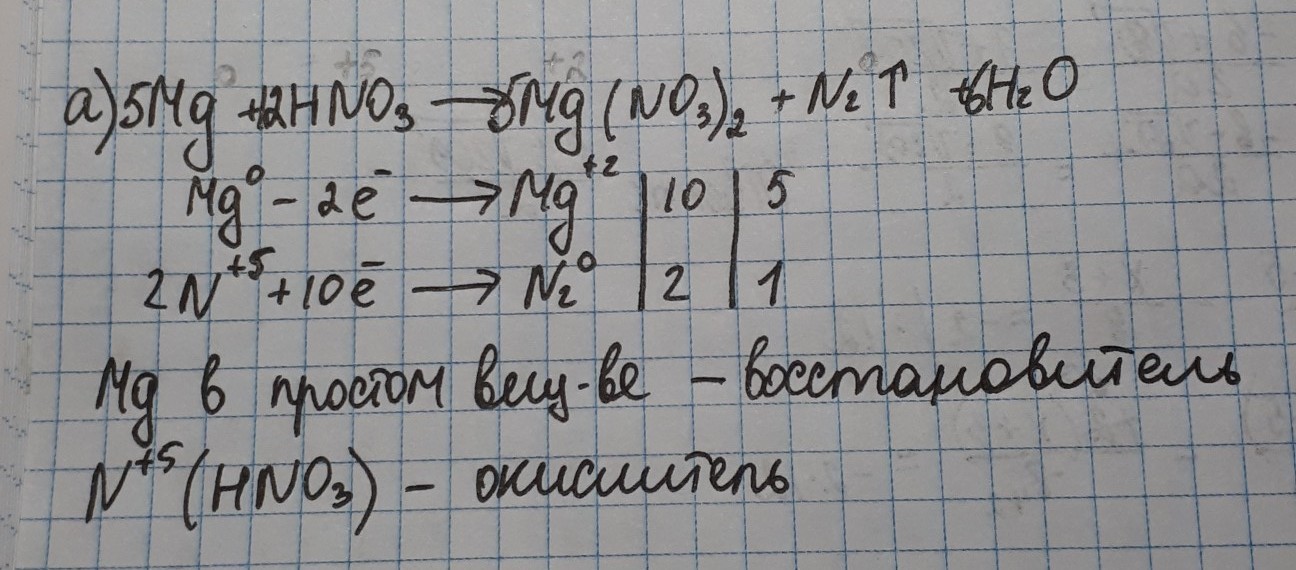 а) 5Mg⁰ + 12HN⁺⁵O₃ → 5Mg⁺²(NO₃)₂ + N₂⁰↑ + 6H₂O
Mg⁰ - 2e⁻ → Mg⁺² | 10 | 5
2N⁺⁵ + 10e⁻ → N₂⁰ | 2 | 1
Mg в простом вещ-ве – восстановитель
N⁺⁵ (HNO₃) – окислитель